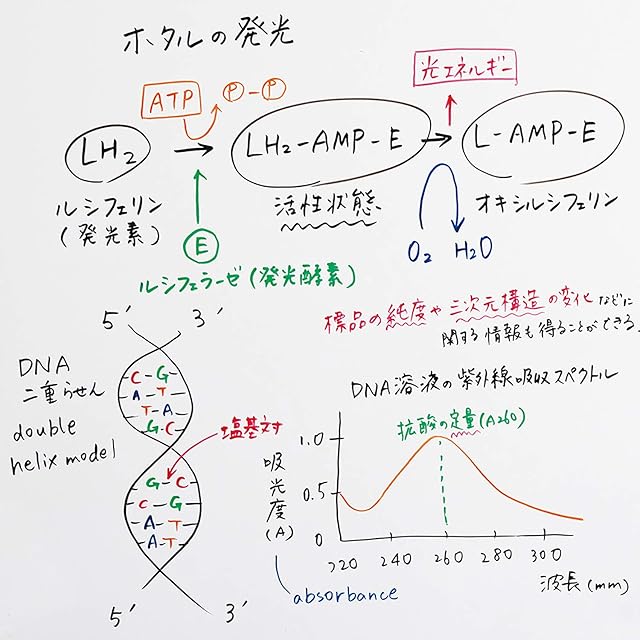 ホタルの発光
ATP
P-P
光エネルギー
LH2
LH2-AMP-E
L-AMP-E
ルシフェリン
(発光素)
活性状態
オキシルシフェリン
E
O2 H2O
ルシフェラーゼ(発光酵素)
標品の純度や三次元構造の変化などに
関する情報も得ることができる.
5' 3'
DNA
二重らせん
double
helix model
C-G
A-T
T-A
G-C
塩基対
G-C
C-G
A-T
A-T
5' 3'
DNA溶液の紫外線吸収スペクトル
抗酸の定量(A260)
吸光度(A)
1.0
0.5
0
220 240 260 280 300
波長(mm)
absorbance